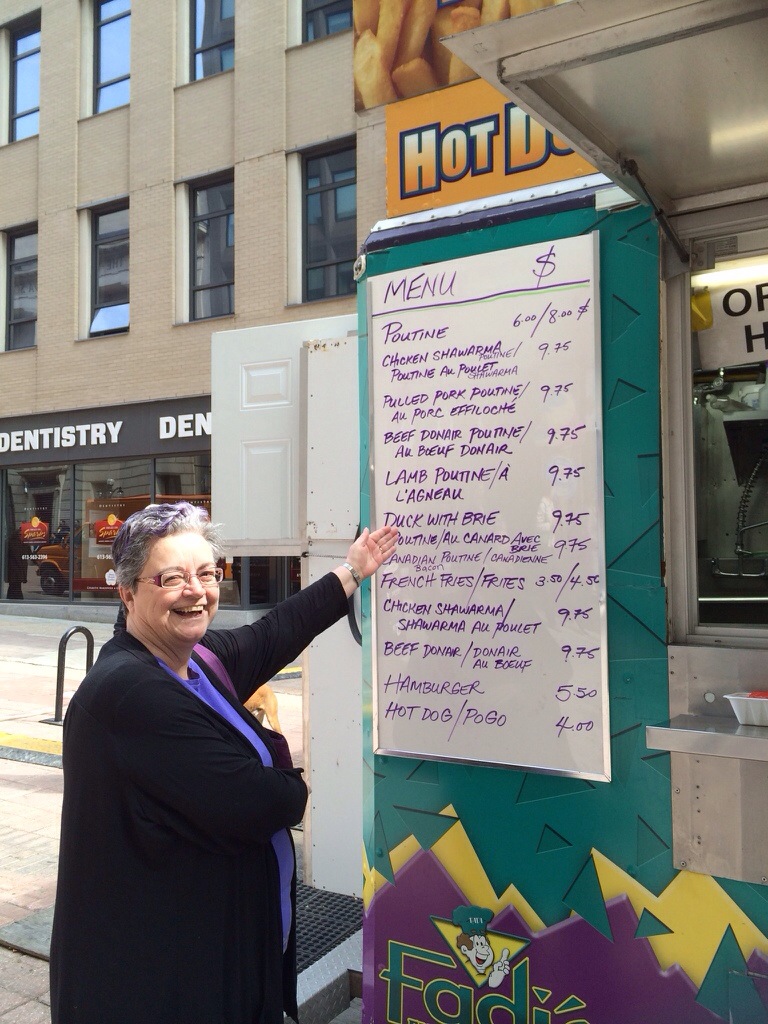 HOT DO
MENU $
POUTINE 6.00/8.00 $
CHICKEN SHAWARMA POUTINE/ 9.75
POUTINE AU POULET SHAWARMA
PULLED PORK POUTINE/ 9.75
AU PORC EFFILOCHÉ
BEEF DONAIR POUTINE/ 9.75
AU BŒUF DONAIR
LAMB POUTINE/À 9.75
L'AGNEAU
DUCK WITH BRIE 9.75
POUTINE/AU CANARD AVEC BRIE
CANADIAN BACON POUTINE/CANADIENNE 9.75
FRENCH FRIES/FRITES 3.50/4.50
CHICKEN SHAWARMA/ 9.75
SHAWARMA AU POULET
BEEF DONAR/DONAIR 9.75
AU BŒUF
HAMBURGER 5.50
HOT DOG/POGO 4.00
OP
H
DENTISTRY DEN
Fadi